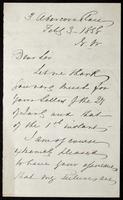 3 Abercorn Place
Feb 3 - 1886
N. W
Dear Sir
Let me thank
you very much for
your letters of the 29
of Jan and that
of the 1st instant
I am of course
extremely pleased
to have your opinion
that my pictures are